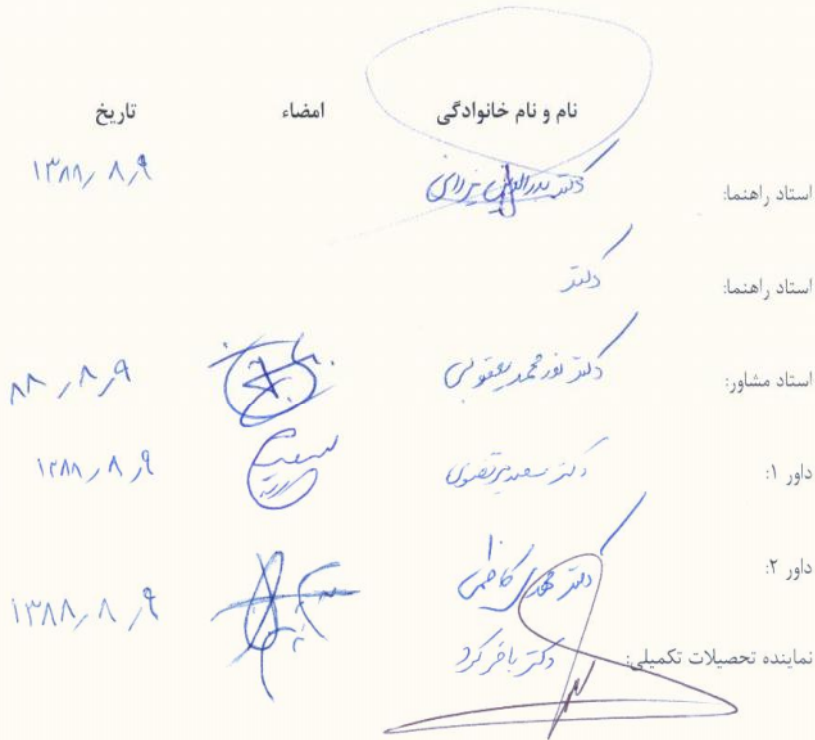 نام و نام خانوادگی امضاء تاریخ
استاد راهنما: دکتر بدرالدین ۱۳۸۸/۸/۹
استاد راهنما: دکتر
استاد مشاور: دکتر نورمحمد یعقوبی ۸۸/۸/۹
داور ۱: دکتر سعید مرتضوی ۱۳۸۸/۸/۹
داور ۲: دکتر مهدی کاظمی ۱۳۸۸/۸/۹
نماینده تحصیلات تکمیلی: دکتر باقر کرد